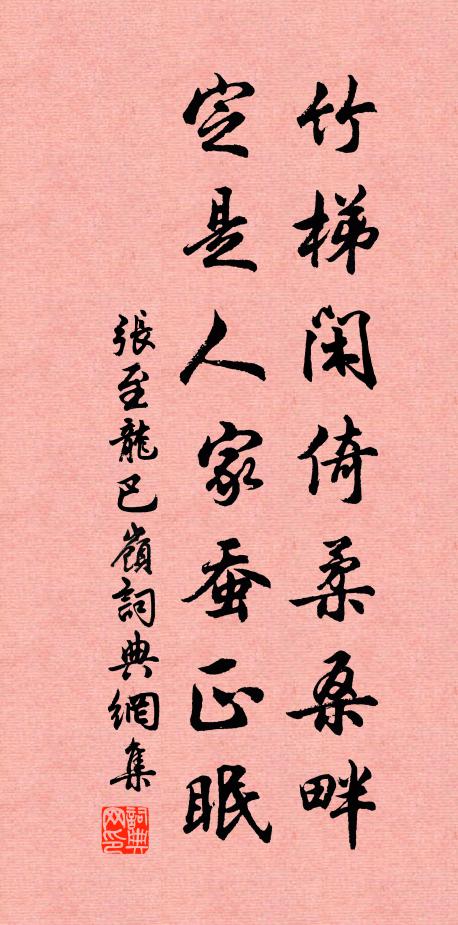 竹梯閑倚柔桑畔
定是人家蚕正眠
張至龍巴嶺詞典網集
詞典网印